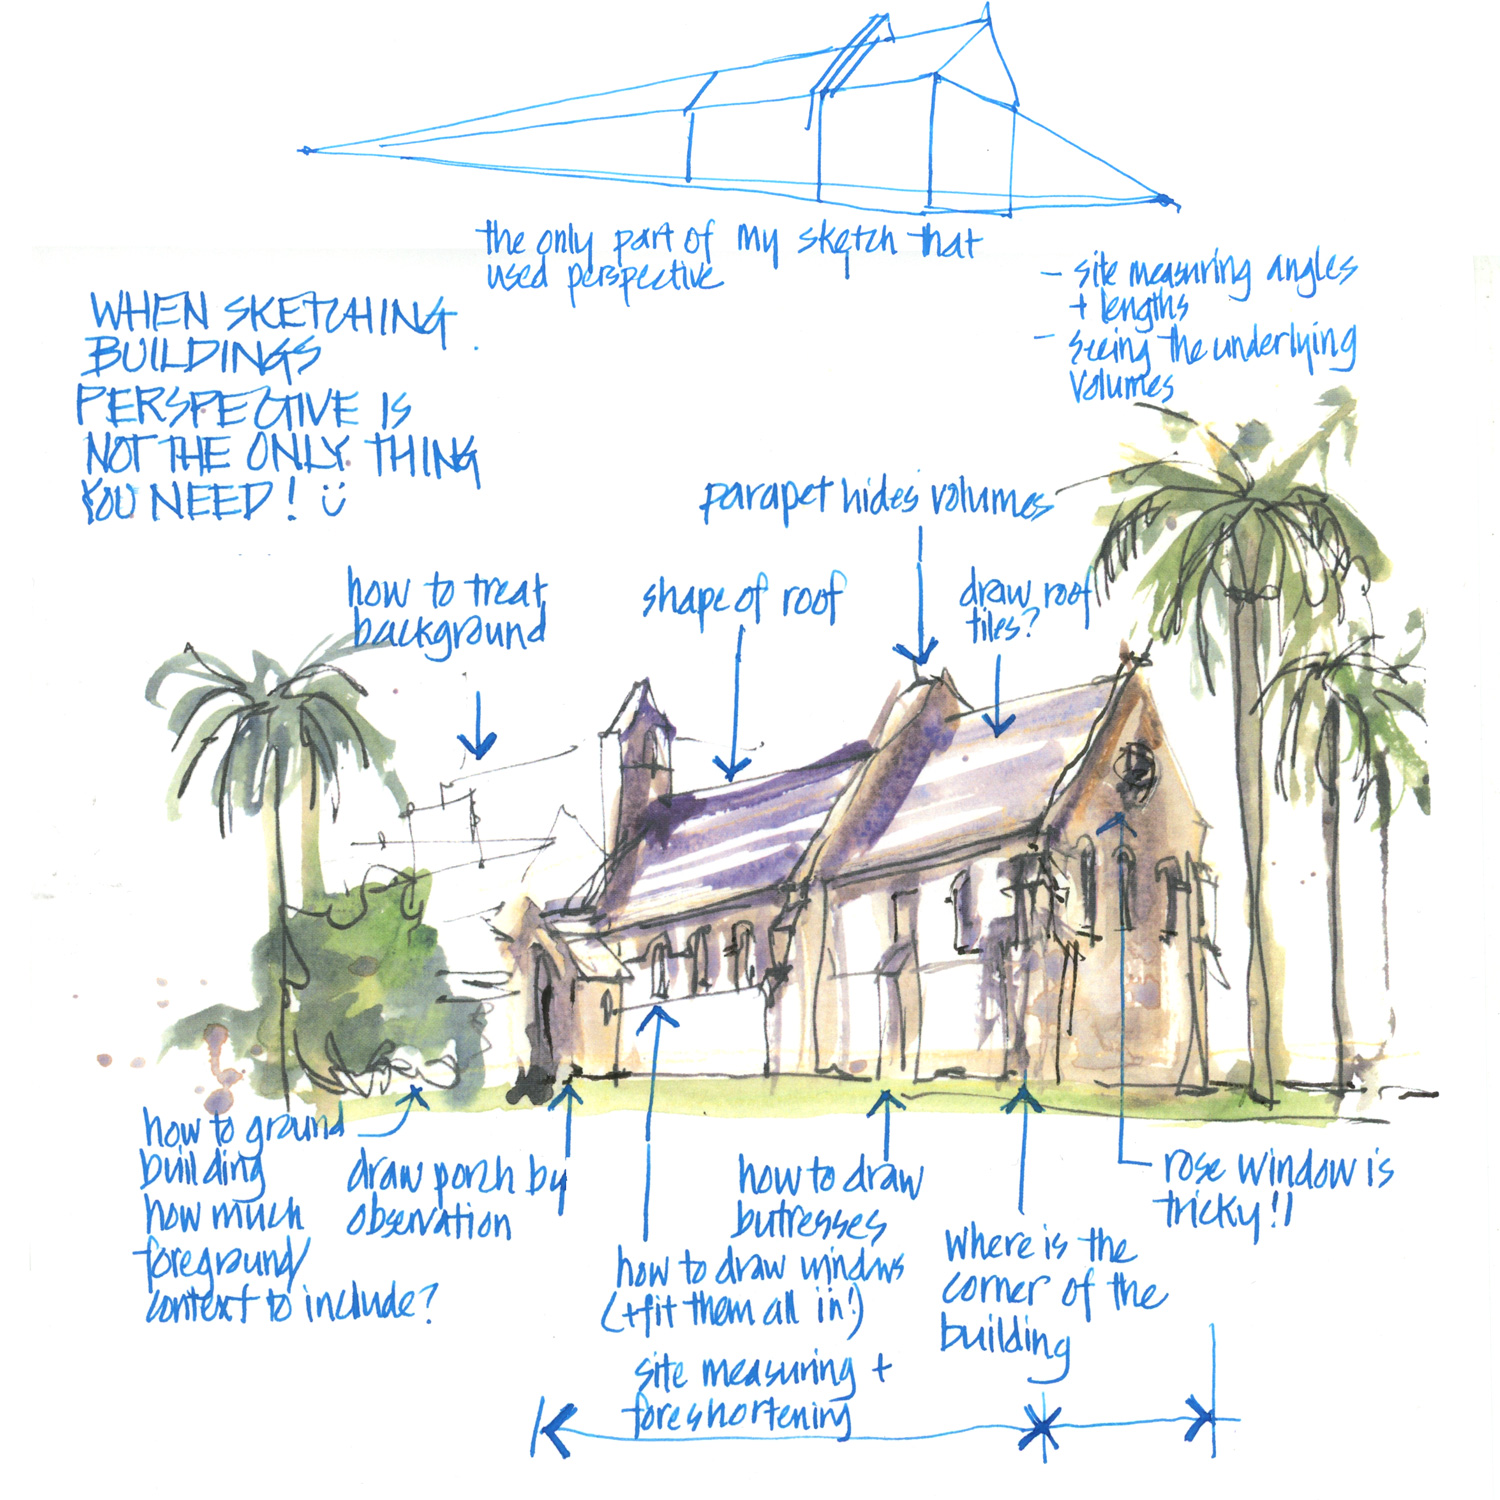 the only part of my sketch that
used perspective
- site measuring angles
+ lengths
- seeing the underlying
volumes
WHEN SKETCHING
BUILDINGS
PERSPECTIVE IS
NOT THE ONLY THING
YOU NEED! Ü
parapet hides volumes
how to treat
background
shape of roof
draw roof
tiles?
how to ground
building
how much
foreground/
context to include?
draw porch by
observation
how to draw windows
(+ fit them all in!)
site measuring +
foreshortening
how to draw
butresses
where is the
corner of the
building
rose window is
tricky!!